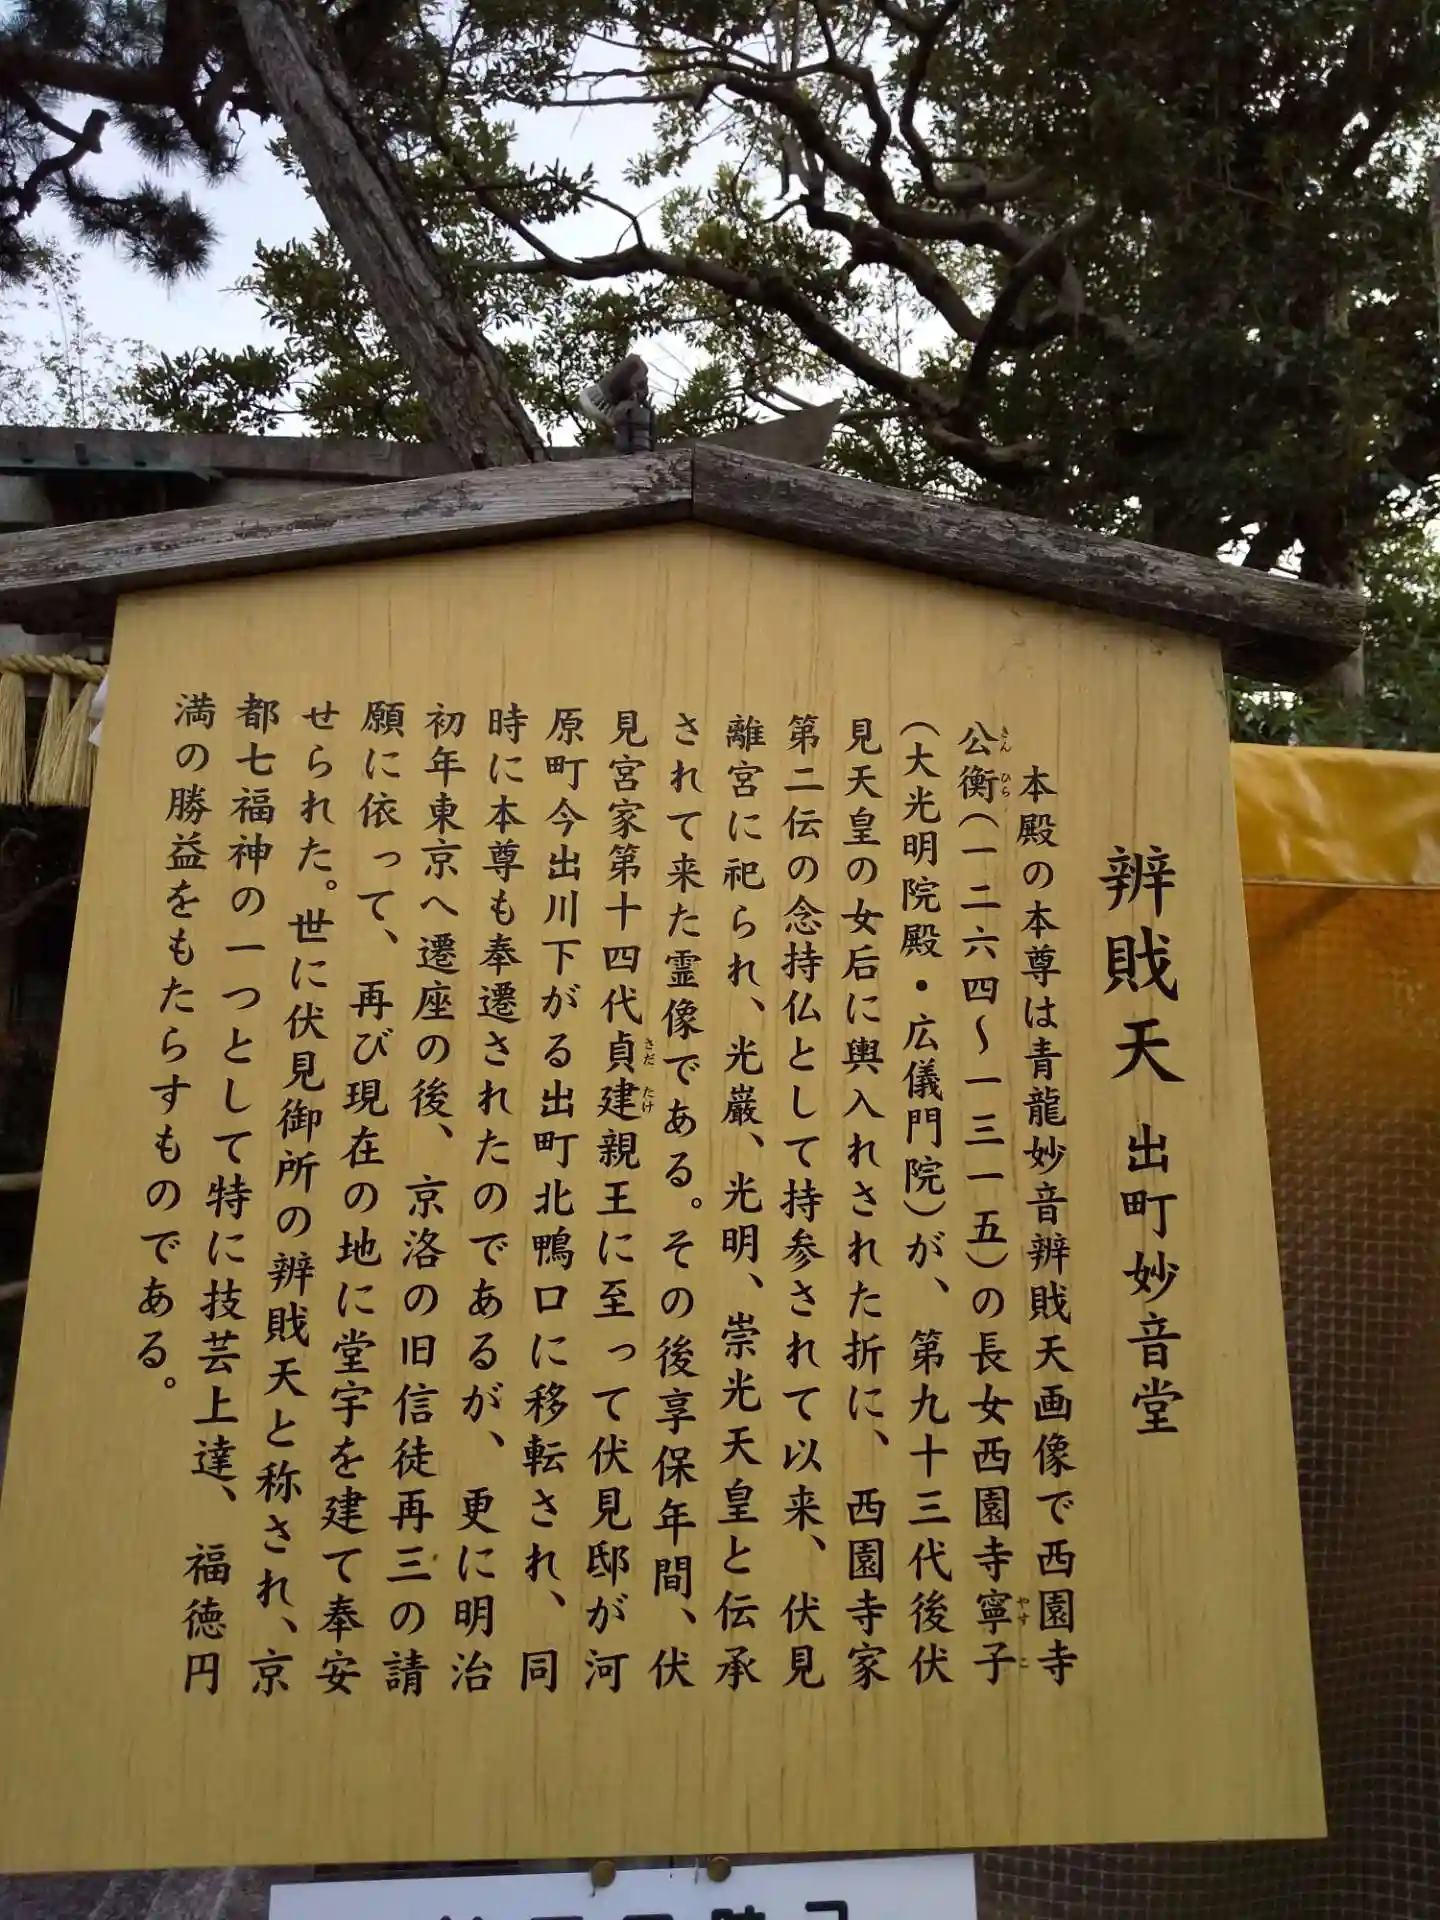 辨戝天 出町妙音堂
本殿の本尊は青龍妙音辨戝天画像で西園寺
公衡(一二六四〜一三一五)の長女西園寺寧子
きん ひら やす こ
(大光明院殿・広儀門院)が、第九十三代後伏
見天皇の女后に輿入れされた折に、西園寺家
第二伝の念持仏として持参されて以来、伏見
離宮に祀られ、光巌、光明、崇光天皇と伝承
されて来た霊像である。その後享保年間、伏
見宮家第十四代貞建親王に至って伏見邸が河
さだ たけ
原町今出川下がる出町北鴨口に移転され、同
時に本尊も奉遷されたのであるが、更に明治
初年東京へ遷座の後、京洛の旧信徒再三の請
願に依って、再び現在の地に堂宇を建て奉安
せられた。世に伏見御所の辨戝天と称され、京
都七福神の一つとして特に技芸上達、福徳円
満の勝益をもたらすものである。